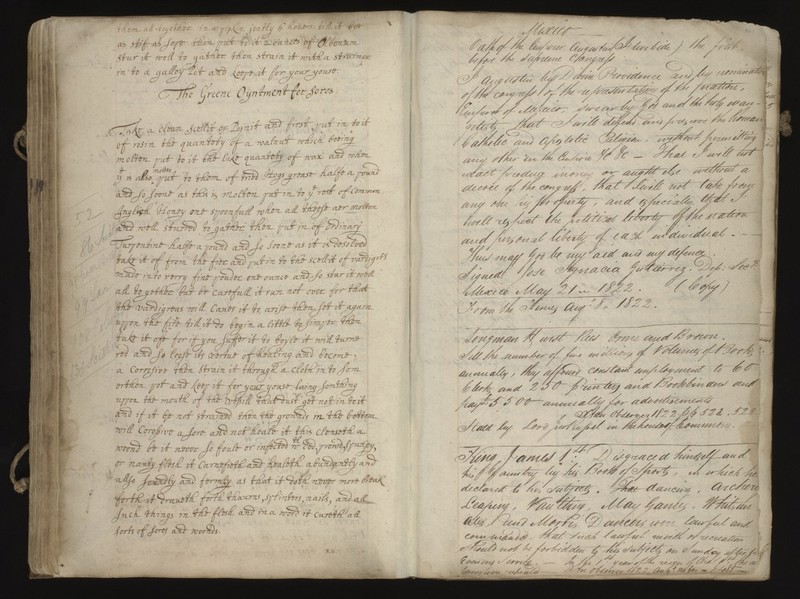 them all together in a pipkin jently 6 howers till it bee
as stif as sope then put to it 2 ounces of
stur it well to gather then strain it with a strainer
in to a galley pot and keepe it for your youse
The Greene Oyntment for sores
Take a clean scellit or and first put in to it
of rosin the quantety of a walnut which being
molten put to it the like quantety of wax and when
molten put to them of tried Hogs grease halfe a pound
and so soone as this is molten put in to ye rest of Common
English Honey one spoonfull when all theese aer molten
and well sturred to gather then put in of ordinary
Turpentine halfe a pound and so soone as it is desolved
take it of from the fier and put in to the scellit of vardigres
made into verry fine pouder one ounce and so stur it well
all to gether but be carefull it run not over for that
the vardigreus will caues it to arise then set it again
uppon the fire till it do begin a little to simper then
take it off for if you suffer it to boyle it will turne
red and so loose its vertue of healing and become
a Corrosive then strain it through a cloth in to som
erthen pot and keep it for your youse laing somthing
uppon the mouth of the that dust get not in to it
and if it be not strained then the grounds in the bottom
will Corosive a sore and not heale it this clenseth a
wound be it never so foule or infected ded, proud, spungey,
or nauty flesh it Carnefieth and healeth abundantly and
allso soundly and formly as that it doth never more break
forth it draweth forth thawrns, splinters, nails, and all
such things in the flesh and in a word it cureth all
sorts of sores and wounds.
52
Mexico
Oath of the Emperor Augustin (Iturbide) the first
before the Supreme Congress
I Augustin by Divine Providence and by nomination
of the congress of the representation of the nation,
Emperor of Mexico, swear by God and the holy evan-
that I will defend and preserve the Roman
Catholic and Apostolic Religion, without permitting
any other in the Empire &c &c — That I will not
exact money or aught else without a
decree of the congress, that I will not take from
any one his property, and especially that I
will respect the political liberty of the nation
and personal liberty of each individual. —
Thus may God be my aid and my defence.
Signed Jose Ignacia Gutierrez. Dep. Sect.
Mexico May 21 1822. (Copy)
From the Times Augt 8. 1822.
Longman Hurst Rees Orme and Brown.
Sell the number of five millions of Volumes of Books
annually, they afford constant employment to 60
Clerks and 250 Printers and Bookbinders and
pays £5500 annually for advertisements
Observer 1822 pp 522. 523
State by Lord in the house of commons.
King James 1st. Disgraced himself and
his Country by his Book of Sports, in which he
declared to his subjects. That dancing, Archery
Leaping, Vaulting, May Games, Whitsun
Ales, and Morris Dances were lawful and
commands that such lawful mirth & recreation
should not be forbidden to his subjects on Sunday after
Evening Service. —